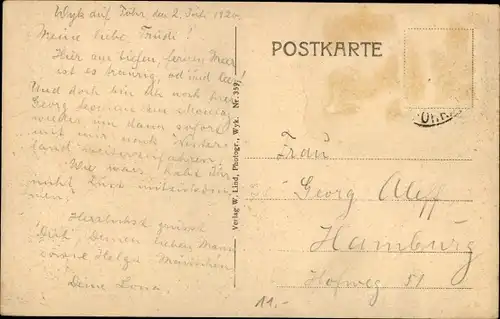 Wyk auf Föhr, den 2. Juli 1920.
Meine liebe Trudi!
Hier am tiefen fernen Meer
ist es traurig, öd und leer!
Und doch bin ich noch hier
Georg
wieder um dann sofort
mit mir nach
land weiterzufahren.
Wie wär's, habt Ihr
nicht Lust mitzukommen
Herzlichst grüsst
Dich, Deinen lieben Mann
sowie Helga
Deine Lona.
Verlag W. Lind, Photogr., Wyk. Nr. 359
POSTKARTE
Frau
Georg Aleff
Hamburg
Hofweg 51
11.-